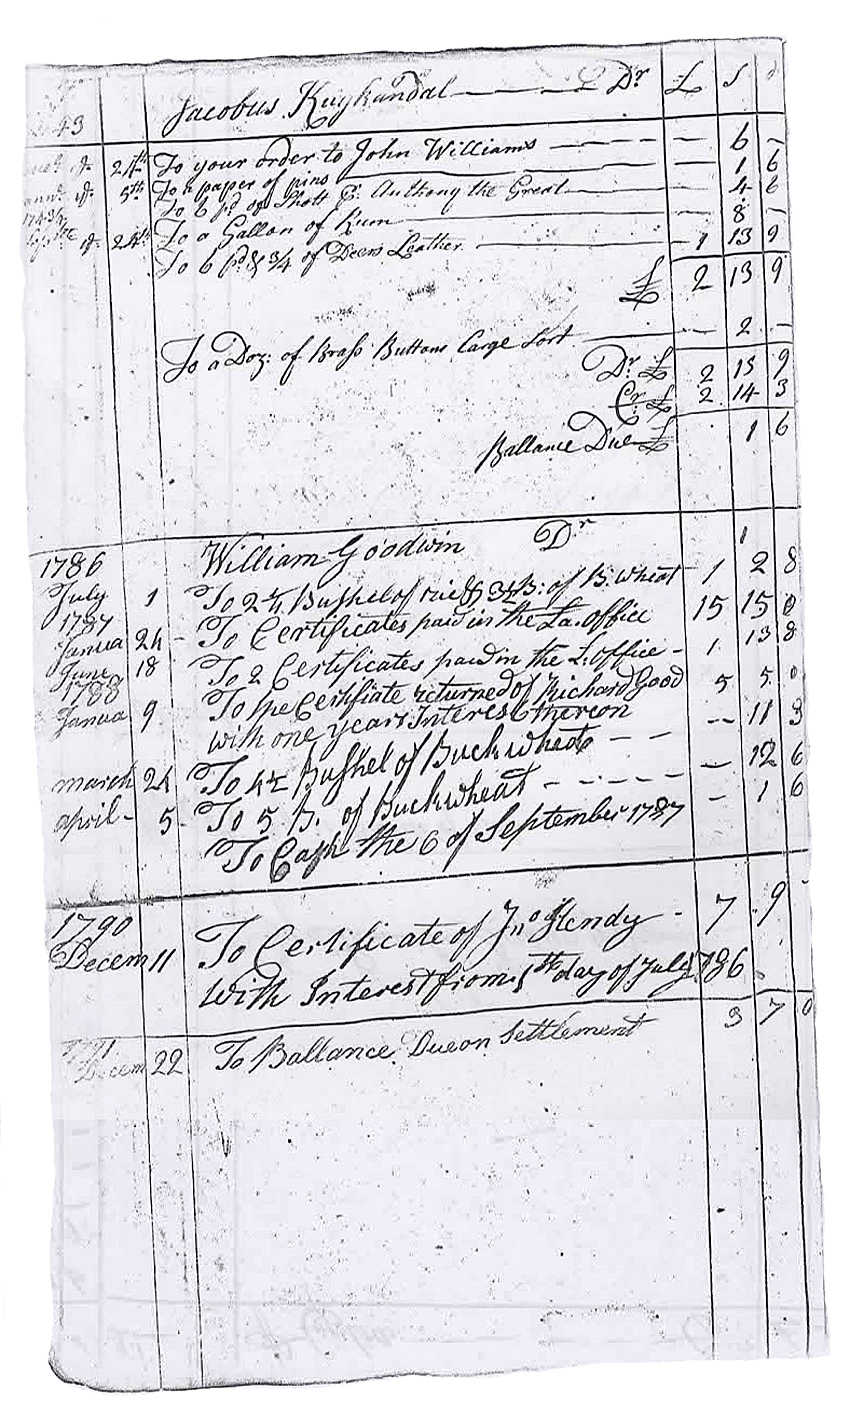 43 Jacobus Kuykandal Dr £ S d
24th To your order to John Williams — 6 —
5th To a paper of pins — 1 6
To 6 pd of Shott P. Anthony the Great — 4 6
To a Gallon of Rum — 8 —
24th To 6 pd & 3/4 of Deers Leather 1 13 9
£ 2 13 9
To a Doz: of Brass Buttons Large Sort — 2 —
Dr £ 2 15 9
Cr £ 2 14 3
Ballance Due £ 1 6
1786 William Goodwin Dr
July 1 To 2 1/4 Bushel of of B. wheat 1 2 8
1787
Janua 24 To Certificates paid in the La. office 15 15 0
June 18 To 2 Certificates paid in the L. office 1 13 8
1788
Janua 9 To the Certifiate returned of Richard Good 5 5 0
with one years Interest thereon
march 24 To 4 1/2 Bushel of Buckwheat — 11 3
april 5 To 5 B. of Buckwheat — 12 6
To Cash the 6 of September 1787 — 1 6
1790
Decem 11 To Certificate of Jno Hendy 7 9
With Interest from 1th day of July 1786
Decem 22 To Ballance Due on Settlement 3 7 0